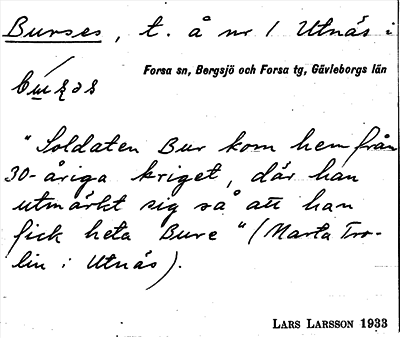 Burses, t. å nr 1 Utnäs i
Forsa sn, Bergsjö och Forsa tg, Gävleborgs län
"Soldaten Bur kom hem från
30-åriga kriget, där han
utmärkt sig så att han
fick heta Bure" (Marta Tro-
lin i Utnäs).
LARS LARSSON 1933